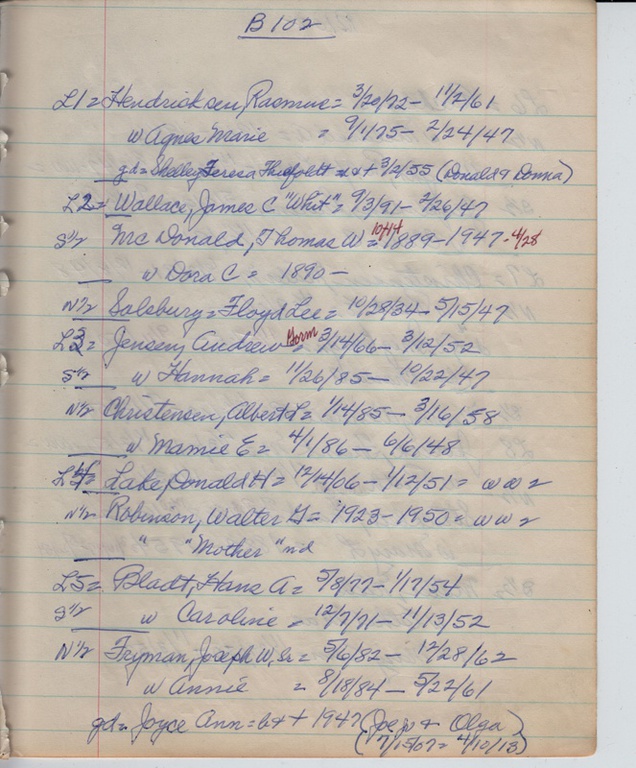 B 102
L1 = Hendricksen, Rasmus = 3/20/72 - 11/2/61
w Agnes Marie = 9/1/75 - 2/24/47
gd = Shelley Teresa = b+ 3/2/55 (Donald & Donna)
L2 = Wallace, James C "Whit" = 9/3/91 - 2/26/47
S 1/2 McDonald, Thomas W = 10/14 1889 - 1947 - 4/28
w Dora C = 1890 -
N 1/2 Salsbury = Floyd Lee = 10/28/34 - 5/15/47
L3 = Jensen, Andrew = 3/14/66 - 3/12/52
S 1/2 w Hannah = 11/26/85 - 10/22/47
N 1/2 Christensen, Albert L = 1/14/85 - 3/16/58
w Mamie E = 4/1/86 - 6/6/48
L4 = Lake, Donald H = 12/14/06 - 1/12/51 = ww2
N 1/2 Robinson, Walter G = 1923 - 1950 = ww2
" "Mother" nd
L5 = Bladt, Hans A = 5/8/77 - 1/17/54
S 1/2 w Caroline = 12/7/71 - 11/13/52
N 1/2 Fryman, Joseph W, Sr = 5/6/82 - 12/28/62
w Annie = 8/18/84 - 5/22/61
gd = Joyce Ann = b+ 1947 (Joe jr & Olga)
(7/15/07 = 4/10/13)